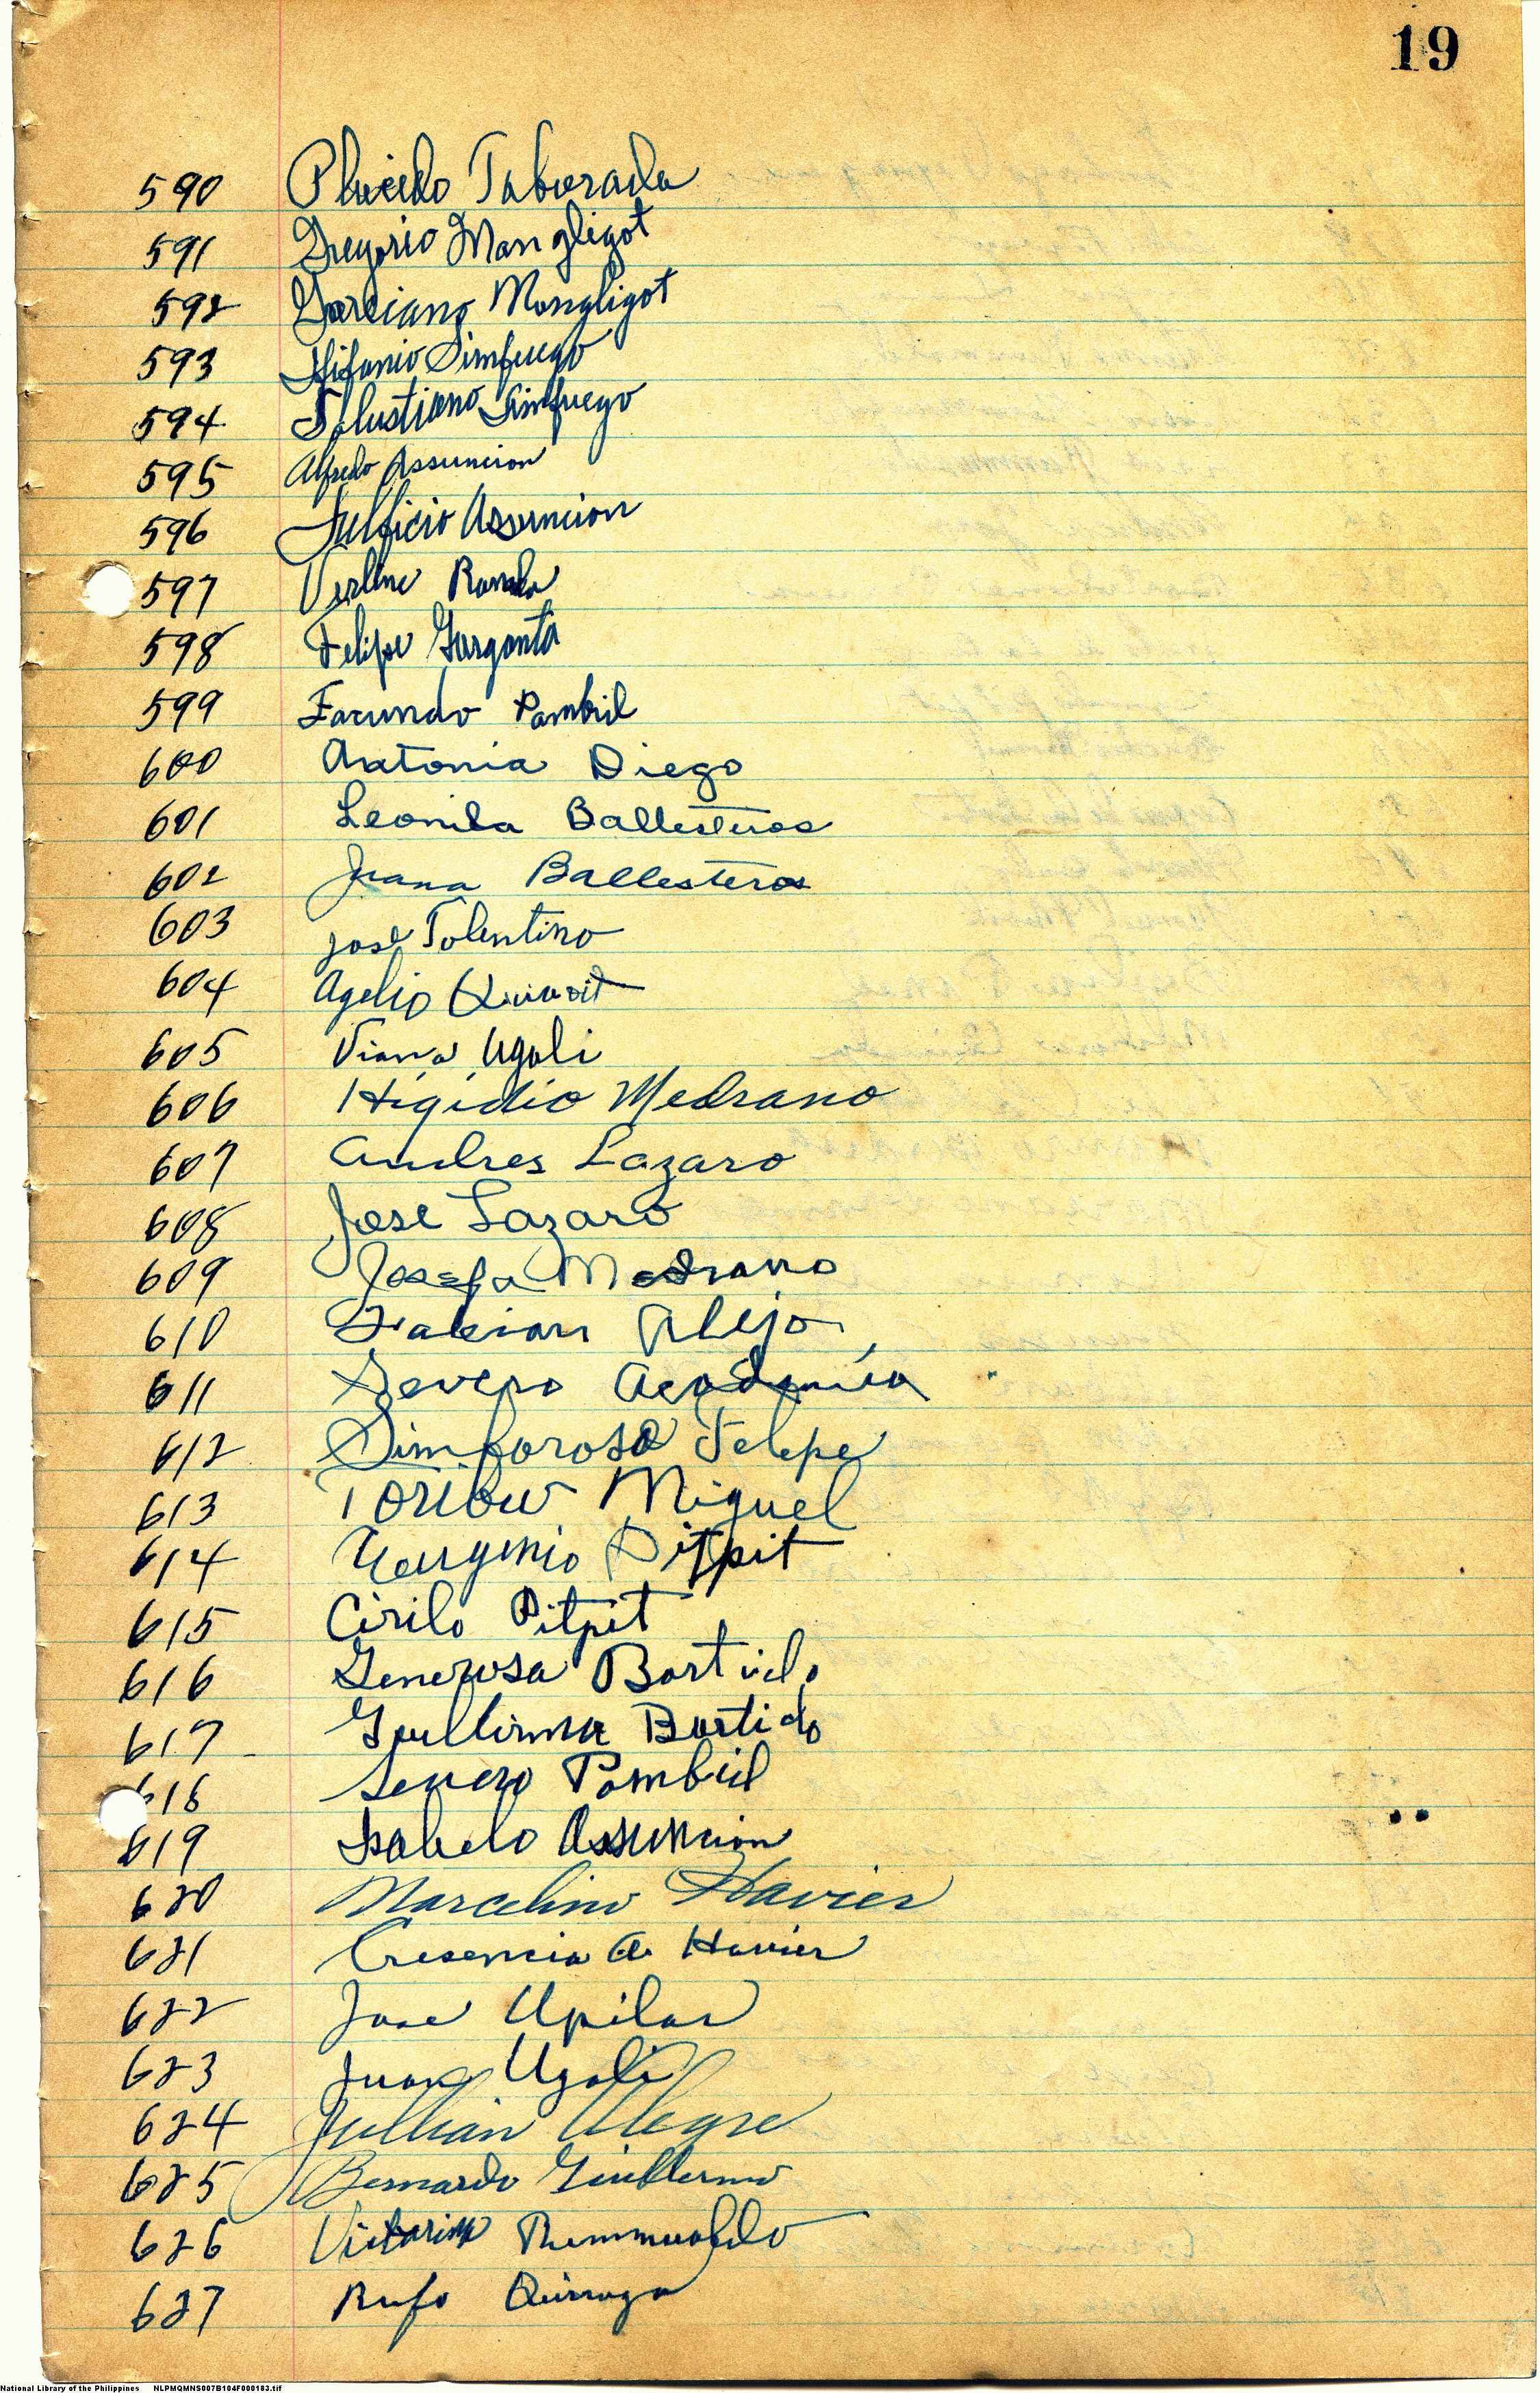 19
590 Placido Taborada
591 Gregorio Mangligot
592 Garciano Mangligot
593 Simfuego
594 Salustiano Simfuego
595 Alfredo Assuncion
596 Sulficio Assuncion
597
598 Felipe Garganta
599 Facundo Pambil
600 Antonia Diego
601 Leonila Ballesteros
602 Juana Ballesteros
603 Jose Tolentino
604 Agelio
605 Viana Ugali
606 Higidio Medrano
607 Andres Lazaro
608 Jose Lazaro
609 Josefa Medrano
610 Alejo
611 Severo Academia
612 Simforosa Felepe
613 Toribio Miguel
614 Pitpit
615 Cirilo Pitpit
616 Generosa Bortido
617 Guillirma Bortido
618 Severo Pambil
619 Isabelo Assuncion
620 Marcelino Havier
621 Cresencia A. Havier
622 Jose Upilar
623 Juan Ugali
624 Jullian Alegre
625 Bernardo Guillermo
626
627 Rufo
National Library of the Philippines NLPMQMNS007B104F000183.tif